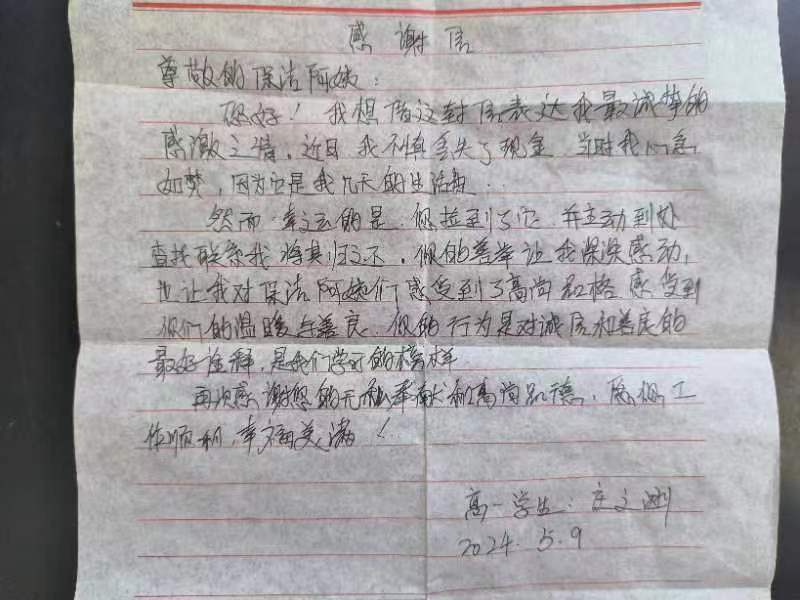 感谢信
尊敬的保洁阿姨:
您好!我想借这封信表达我最诚挚的
感激之情,近日我不慎丢失了现金 当时我心急
如焚,因为它是我几天的生活费.
然而幸运的是 您捡到了它 并主动到处
查找联系我将其归还,您的善举让我深深感动,
也让我对保洁阿姨们感受到了高尚品格 感受到
你们的温暖与善良 您的行为是对诚信和善良的
最好诠释,是我们学习的榜样
再次感谢您的无私奉献和高尚品德,愿您工
作顺利,幸福美满!
高一学生:庄文
2024.5.9